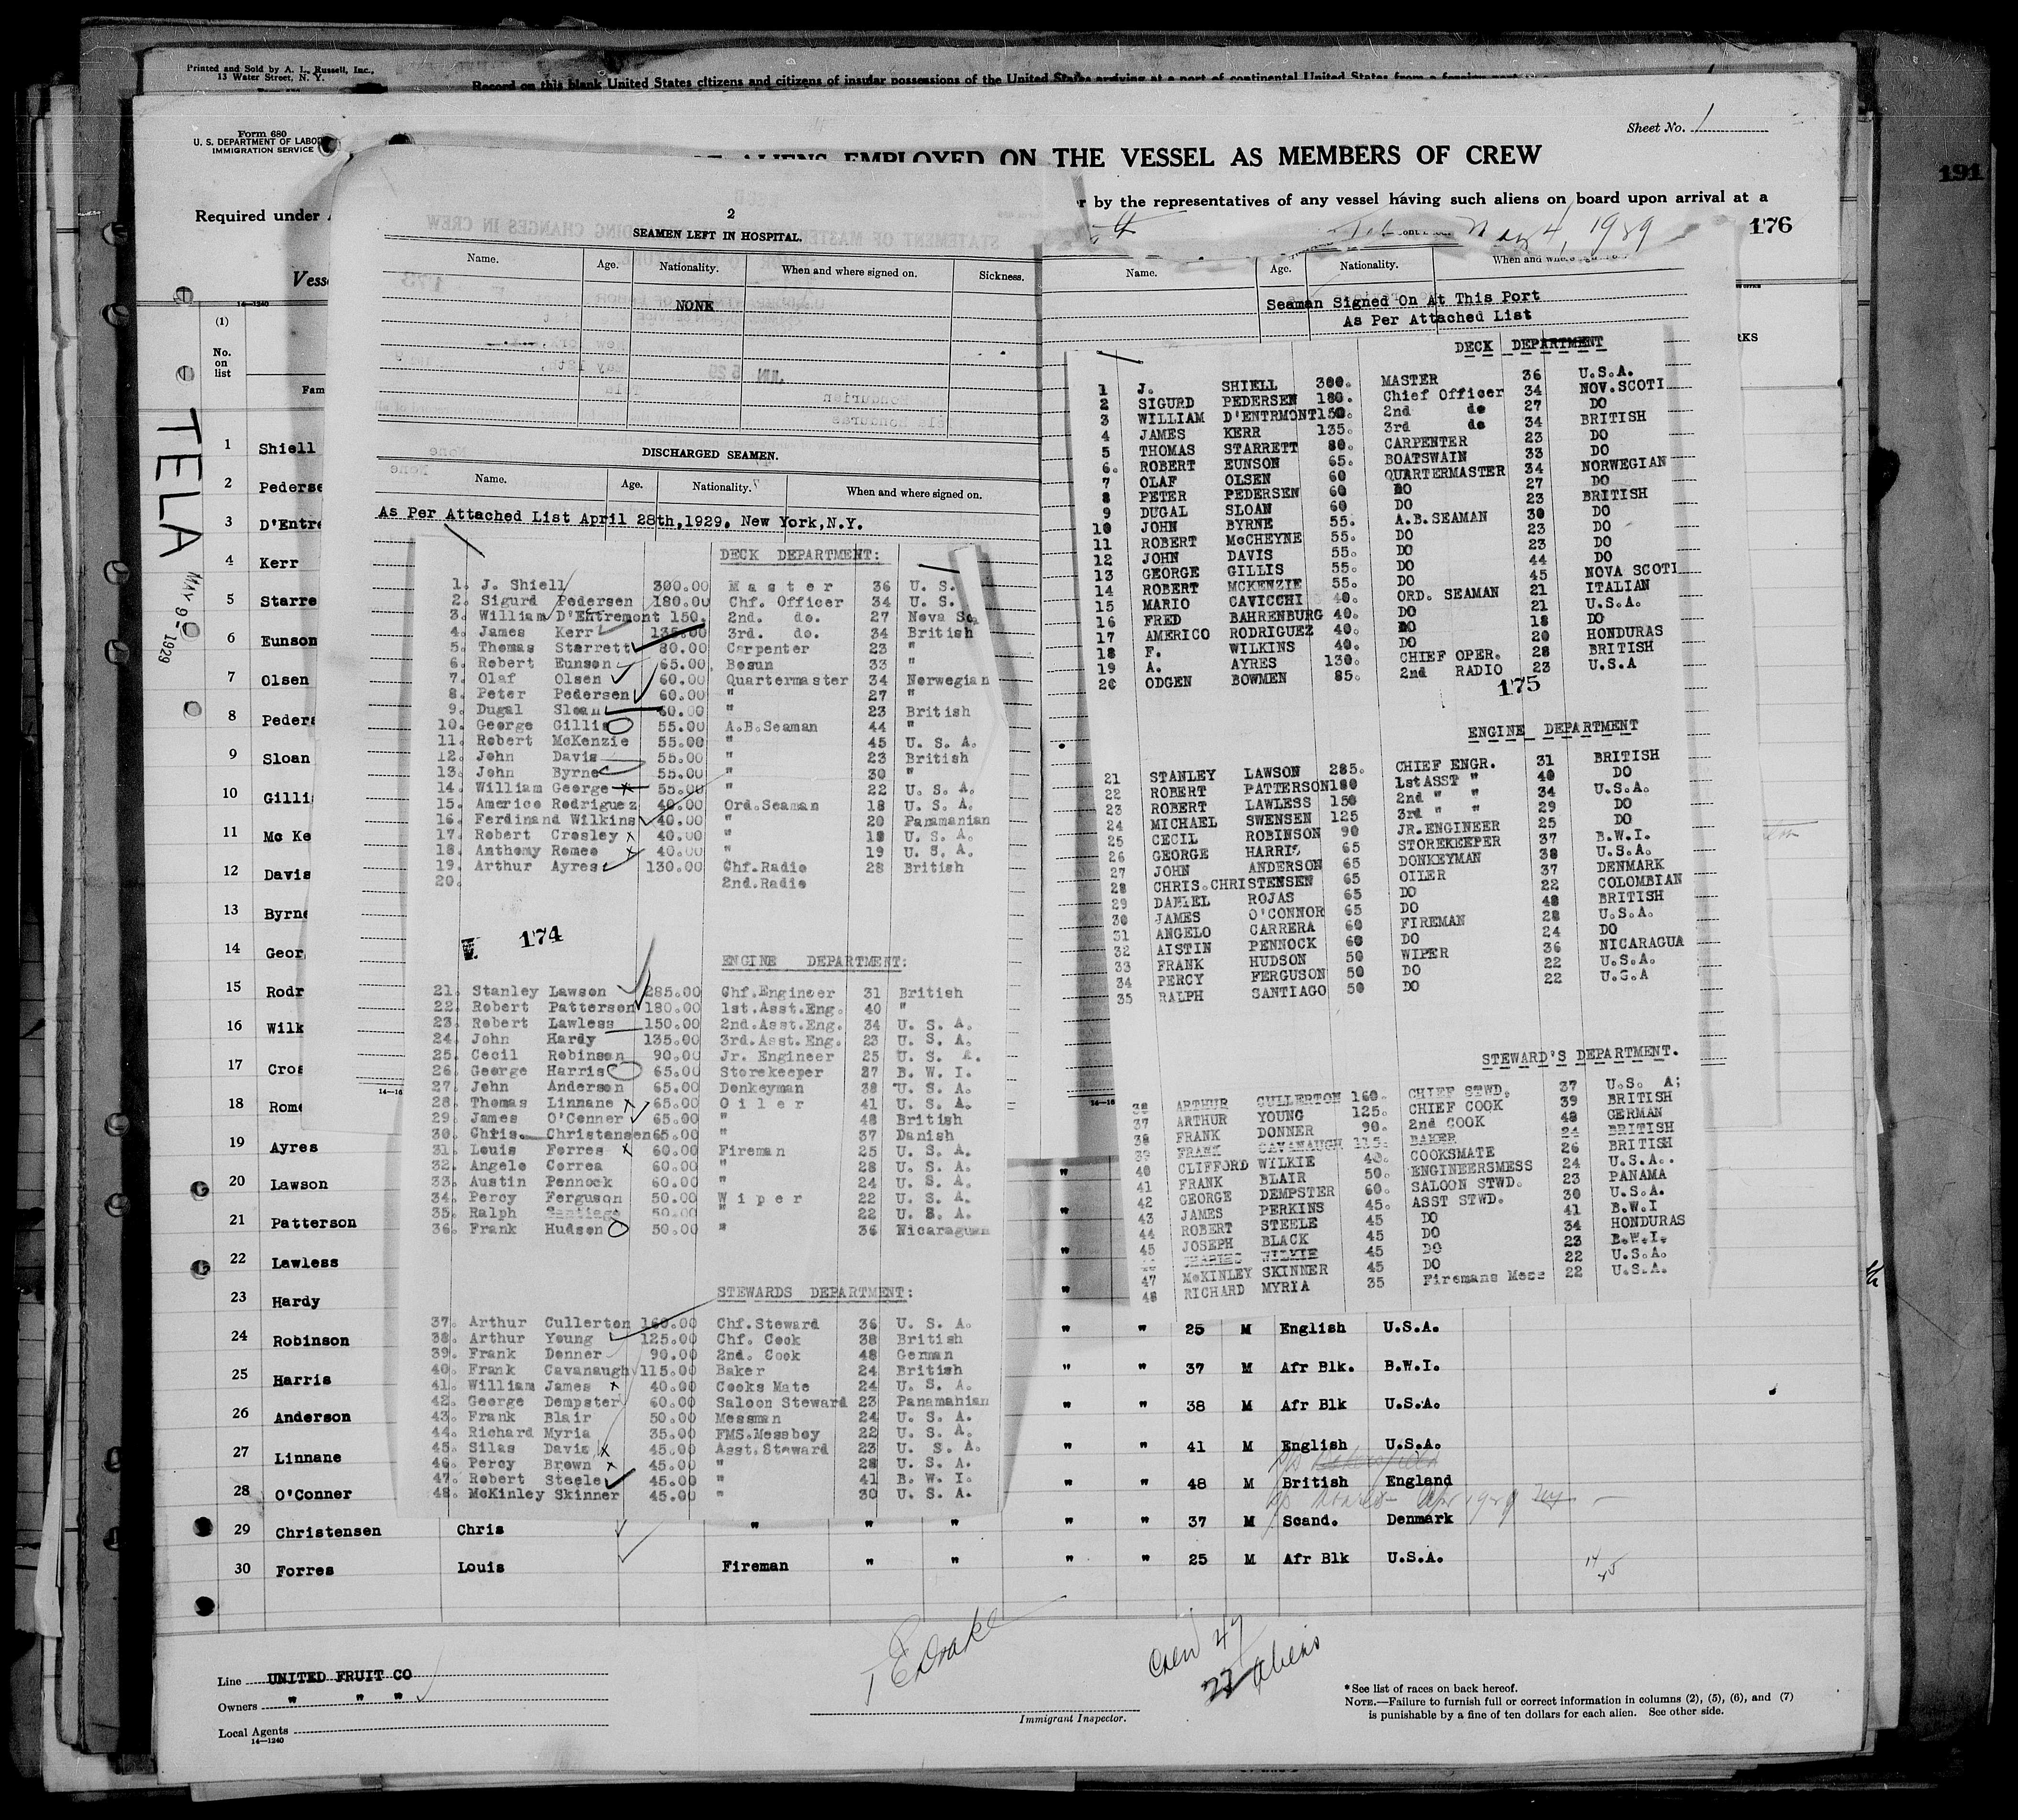 Printed and Sold by A. L. Russell, Inc.,
13 Water Street, N. Y.
Record on this blank United States citizens and citizens of insular possessions of the United States arriving at a port of continental United States from a foreign port
191
Form 680
U. S. DEPARTMENT OF LABOR
IMMIGRATION SERVICE
Sheet No. 1
ALIENS EMPLOYED ON THE VESSEL AS MEMBERS OF CREW
Required under
by the representatives of any vessel having such aliens on board upon arrival at a
176
May 4, 1929
14—1240
(1)
No.
on
list
TELA
MAY 9 - 1929
1 Shiell
2 Pederse
3 D'Entre
4 Kerr
5 Starre
6 Eunson
7 Olsen
8 Peders
9 Sloan
10 Gillis
11 Mc Ke
12 Davis
13 Byrne
14 Geor
15 Rodr
16 Wilk
17 Cros
18 Rome
19 Ayres
20 Lawson
21 Patterson
22 Lawless
23 Hardy
24 Robinson " " 25 M English U.S.A.
25 Harris " " 37 M Afr Blk. B.W.I.
26 Anderson " " 38 M Afr Blk U.S.A.
27 Linnane " " 41 M English U.S.A.
28 O'Conner " " 48 M British England
29 Christensen Chris " " " " " 37 M Scand. Denmark
30 Forres Louis Fireman " " " " 25 M Afr Blk U.S.A.
2
SEAMEN LEFT IN HOSPITAL.
Name. Age. Nationality. When and where signed on. Sickness.
NONE
DISCHARGED SEAMEN.
Name. Age. Nationality. When and where signed on.
As Per Attached List April 28th,1929, New York,N.Y.
DECK DEPARTMENT:
1. J. Shiell 300.00 Master 36 U. S.
2. Sigurd Pedersen 180.00 Chf. Officer 34 U. S.
3. William D'Entremont 150. 2nd. do. 27 Nova Sc
4. James Kerr 135.00 3rd. do. 34 British
5. Thomas Starrett 80.00 Carpenter 23 "
6. Robert Eunson 65.00 Bosun 33 "
7. Olaf Olsen 60.00 Quartermaster 34 Norwegian
8. Peter Pedersen 60.00 " 27 "
9. Dugal Sloan 60.00 " 23 British
10. George Gillis 55.00 A.B.Seaman 44 "
11. Robert McKenzie 55.00 " 45 U. S. A.
12. John Davis 55.00 " 23 British
13. John Byrne 55.00 " 30 "
14. William George 55.00 " 22 U. S. A.
15. Americo Rodriguez 40.00 Ord.Seaman 18 U. S. A.
16. Ferdinand Wilkins 40.00 " 20 Panamanian
17. Robert Crosley 40.00 " 18 U. S. A.
18. Anthony Romeo 40.00 " 19 U. S. A.
19. Arthur Ayres 130.00 Chf.Radio 28 British
20. 2nd.Radio
174
ENGINE DEPARTMENT:
21. Stanley Lawson 285.00 Chf.Engineer 31 British
22. Robert Patterson 180.00 1st.Asst.Eng. 40 "
23. Robert Lawless 150.00 2nd.Asst.Eng. 34 U. S. A.
24. John Hardy 135.00 3rd.Asst.Eng. 23 U. S. A.
25. Cecil Robinson 90.00 Jr. Engineer 25 U. S. A.
26. George Harris 65.00 Storekeeper 37 B. W. I.
27. John Anderson 65.00 Donkeyman 38 U. S. A.
28. Thomas Linnane 65.00 Oiler 41 U. S. A.
29. James O'Conner 65.00 " 48 British
30. Chris. Christensen 65.00 " 37 Danish
31. Louis Forres 60.00 Fireman 25 U. S. A.
32. Angelo Correa 60.00 " 28 U. S. A.
33. Austin Pennock 60.00 " 24 U. S. A.
34. Percy Ferguson 50.00 Wiper 22 U. S. A.
35. Ralph Santiago 50.00 " 22 U. S. A.
36. Frank Hudson 50.00 " 36 Nicaraguan
STEWARDS DEPARTMENT:
37. Arthur Cullerton 160.00 Chf.Steward 36 U. S. A.
38. Arthur Young 125.00 Chf. Cook 38 British
39. Frank Donner 90.00 2nd. Cook 48 German
40. Frank Cavanaugh 115.00 Baker 24 British
41. William James 40.00 Cooks Mate 24 U. S. A.
42. George Dempster 60.00 Saloon Steward 23 Panamanian
43. Frank Blair 50.00 Messman 24 U. S. A.
44. Richard Myria 35.00 FMS.Messboy 22 U. S. A.
45. Silas Davis 45.00 Asst.Steward 23 U. S. A.
46. Percy Brown 45.00 " 28 U. S. A.
47. Robert Steele 45.00 " 41 B. W. I.
48. McKinley Skinner 45.00 " 30 U. S. A.
Name. Age. Nationality.
Seaman Signed On At This Port
As Per Attached List
DECK DEPARTMENT
1 J. SHIELL 300. MASTER 36 U.S.A.
2 SIGURD PEDERSEN 180. Chief Officer 34 NOV.SCOTI
3 WILLIAM D'ENTRMONT 150. 2nd do 27 DO
4 JAMES KERR 135. 3rd do 34 BRITISH
5 THOMAS STARRETT 80. CARPENTER 23 DO
6. ROBERT EUNSON 65. BOATSWAIN 33 DO
7 OLAF OLSEN 60 QUARTERMASTER 34 NORWEGIAN
8 PETER PEDERSEN 60 DO 27 DO
9 DUGAL SLOAN 60 DO 23 BRITISH
10 JOHN BYRNE 55. A.B.SEAMAN 30 DO
11 ROBERT McCHEYNE 55. DO 23 DO
12 JOHN DAVIS 55. DO 23 DO
13 GEORGE GILLIS 55. DO 44 DO
14 ROBERT MCKENZIE 55. DO 45 NOVA SCOTI
15 MARIO CAVICCHI 40. ORD. SEAMAN 21 ITALIAN
16 FRED BAHRENBURG 40. DO 21 U.S.A.
17 AMERICO RODRIGUEZ 40. DO 18 DO
18 F. WILKINS 40. DO 20 HONDURAS
19 A. AYRES 130. CHIEF OPER. 28 BRITISH
20 ODGEN BOWMEN 85. 2nd RADIO 23 U.S.A
175
ENGINE DEPARTMENT
21 STANLEY LAWSON 285. CHIEF ENGR. 31 BRITISH
22 ROBERT PATTERSON 180 1stASST " 40 DO
23 ROBERT LAWLESS 150 2nd " " 34 U.S.A.
24 MICHAEL SWENSEN 125 3rd " " 29 DO
25 CECIL ROBINSON 90 JR.ENGINEER 25 DO
26 GEORGE HARRIS 65 STOREKEEPER 37 B.W.I.
27 JOHN ANDERSON 65 DONKEYMAN 38 U.S.A.
28 CHRIS.CHRISTENSEN 65 OILER 37 DENMARK
29 DANIEL ROJAS 65 DO 22 COLOMBIAN
30 JAMES O'CONNOR 65 DO 48 BRITISH
31 ANGELO CARRERA 60 FIREMAN 28 U.S.A.
32 AISTIN PENNOCK 60 DO 24 DO
33 FRANK HUDSON 50 WIPER 36 NICARAGUA
34 PERCY FERGUSON 50 DO 22 U.S.A.
35 RALPH SANTIAGO 50 DO 22 U.S.A
STEWARD'S DEPARTMENT.
ARTHUR CULLERTON 160. CHIEF STWD. 37 U.S. A;
37 ARTHUR YOUNG 125. CHIEF COOK 39 BRITISH
38 FRANK DONNER 90. 2nd COOK 48 GERMAN
39 FRANK CAVANAUGH 115. BAKER 24 BRITISH
40 CLIFFORD WILKIE 40. COOKSMATE 26 BRITISH
41 FRANK BLAIR 50. ENGINEERSMESS 24 U.S.A..
42 GEORGE DEMPSTER 60. SALOON STWD. 23 PANAMA
43 JAMES PERKINS 45. ASST STWD. 30 U.S.A.
44 ROBERT STEELE 45 DO 41 B.W.I
45 JOSEPH BLACK 45 DO 34 HONDURAS
CHARLES WILKIE 45 DO 23 B.W.I.
47 McKINLEY SKINNER 45 DO 22 U.S.A.
48 RICHARD MYRIA 35 Firemans Mess 22 U.S.A.
Line UNITED FRUIT CO
Owners " " "
Local Agents
14—1240
Immigrant Inspector.
Crew 47
27 Aliens
*See list of races on back hereof.
NOTE.—Failure to furnish full or correct information in columns (2), (5), (6), and (7)
is punishable by a fine of ten dollars for each alien. See other side.